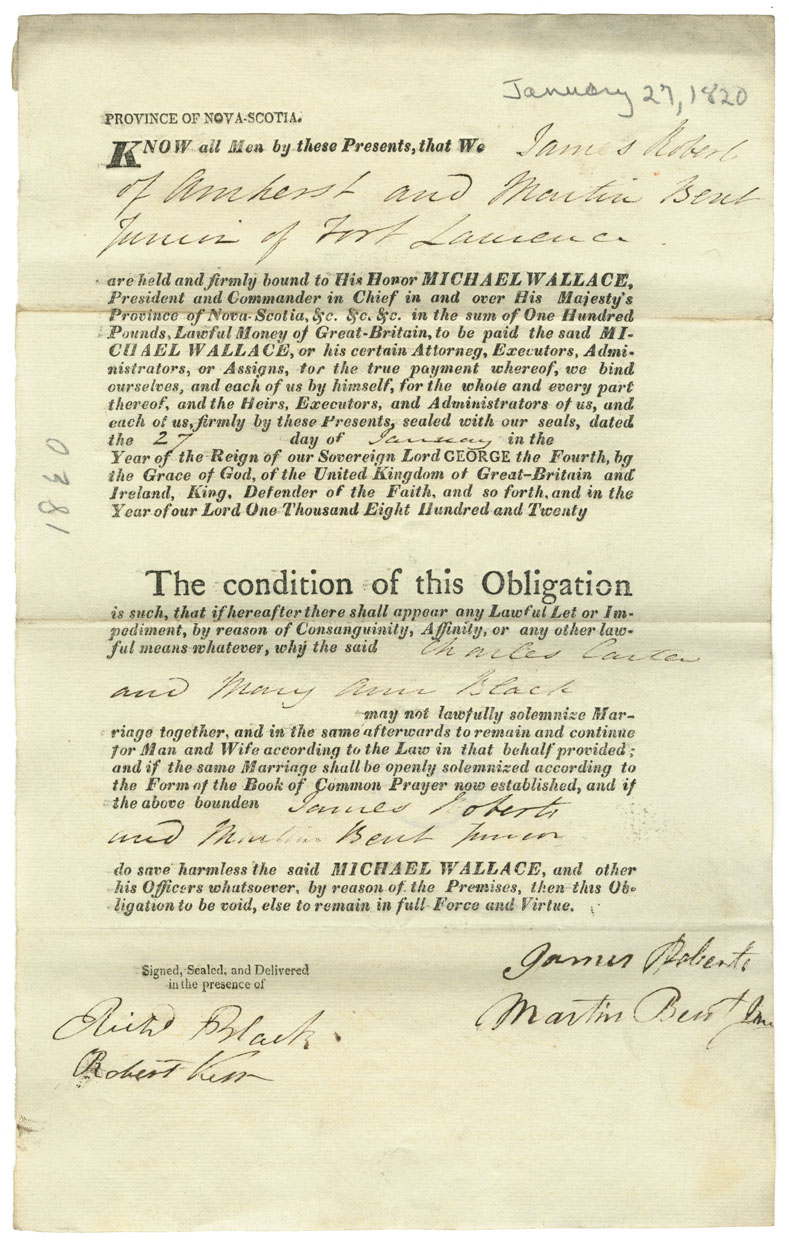 January 27, 1820
PROVINCE OF NOVA-SCOTIA.
KNOW all Men by these Presents, that We James Robert
of Amherst and Martin Bent
Junior of Fort Lawrence
are held and firmly bound to His Honor MICHAEL WALLACE,
President and Commander in Chief in and over His Majesty's
Province of Nova-Scotia, &c. &c. &c. in the sum of One Hundred
Pounds, Lawful Money of Great-Britain, to be paid the said MI-
CHAEL WALLACE, or his certain Attorneg, Executors, Admi-
nistrators, or Assigns, for the true payment whereof, we bind
ourselves, and each of us by himself, for the whole and every part
thereof, and the Heirs, Executors, and Administrators of us, and
each of us, firmly by these Presents, sealed with our seals, dated
the 27 day of January in the
Year of the Reign of our Sovereign Lord GEORGE the Fourth, bg
the Grace of God, of the United Kingdom of Great-Britain and
Ireland, King, Defender of the Faith, and so forth, and in the
Year of our Lord One Thousand Eight Hundred and Twenty
1820
The condition of this Obligation
is such, that if hereafter there shall appear any Lawful Let or Im-
pediment, by reason of Consanguinity, Affinity, or any other law-
ful means whatever, why the said Charles Carter
and Mary Ann Black
may not lawfully solemnize Mar-
riage together, and in the same afterwards to remain and continue
for Man and Wife according to the Law in that behalf provided;
and if the same Marriage shall be openly solemnized according to
the Form of the Book of Common Prayer now established, and if
the above bounden James Roberts
and Martin Bent Junior
do save harmless the said MICHAEL WALLACE, and other
his Officers whatsoever, by reason of the Premises, then this Ob-
ligation to be void, else to remain in full Force and Virtue.
Signed, Sealed, and Delivered
in the presence of
James Roberts
Martin Bent Jun
Richd Black
Robert Kerr